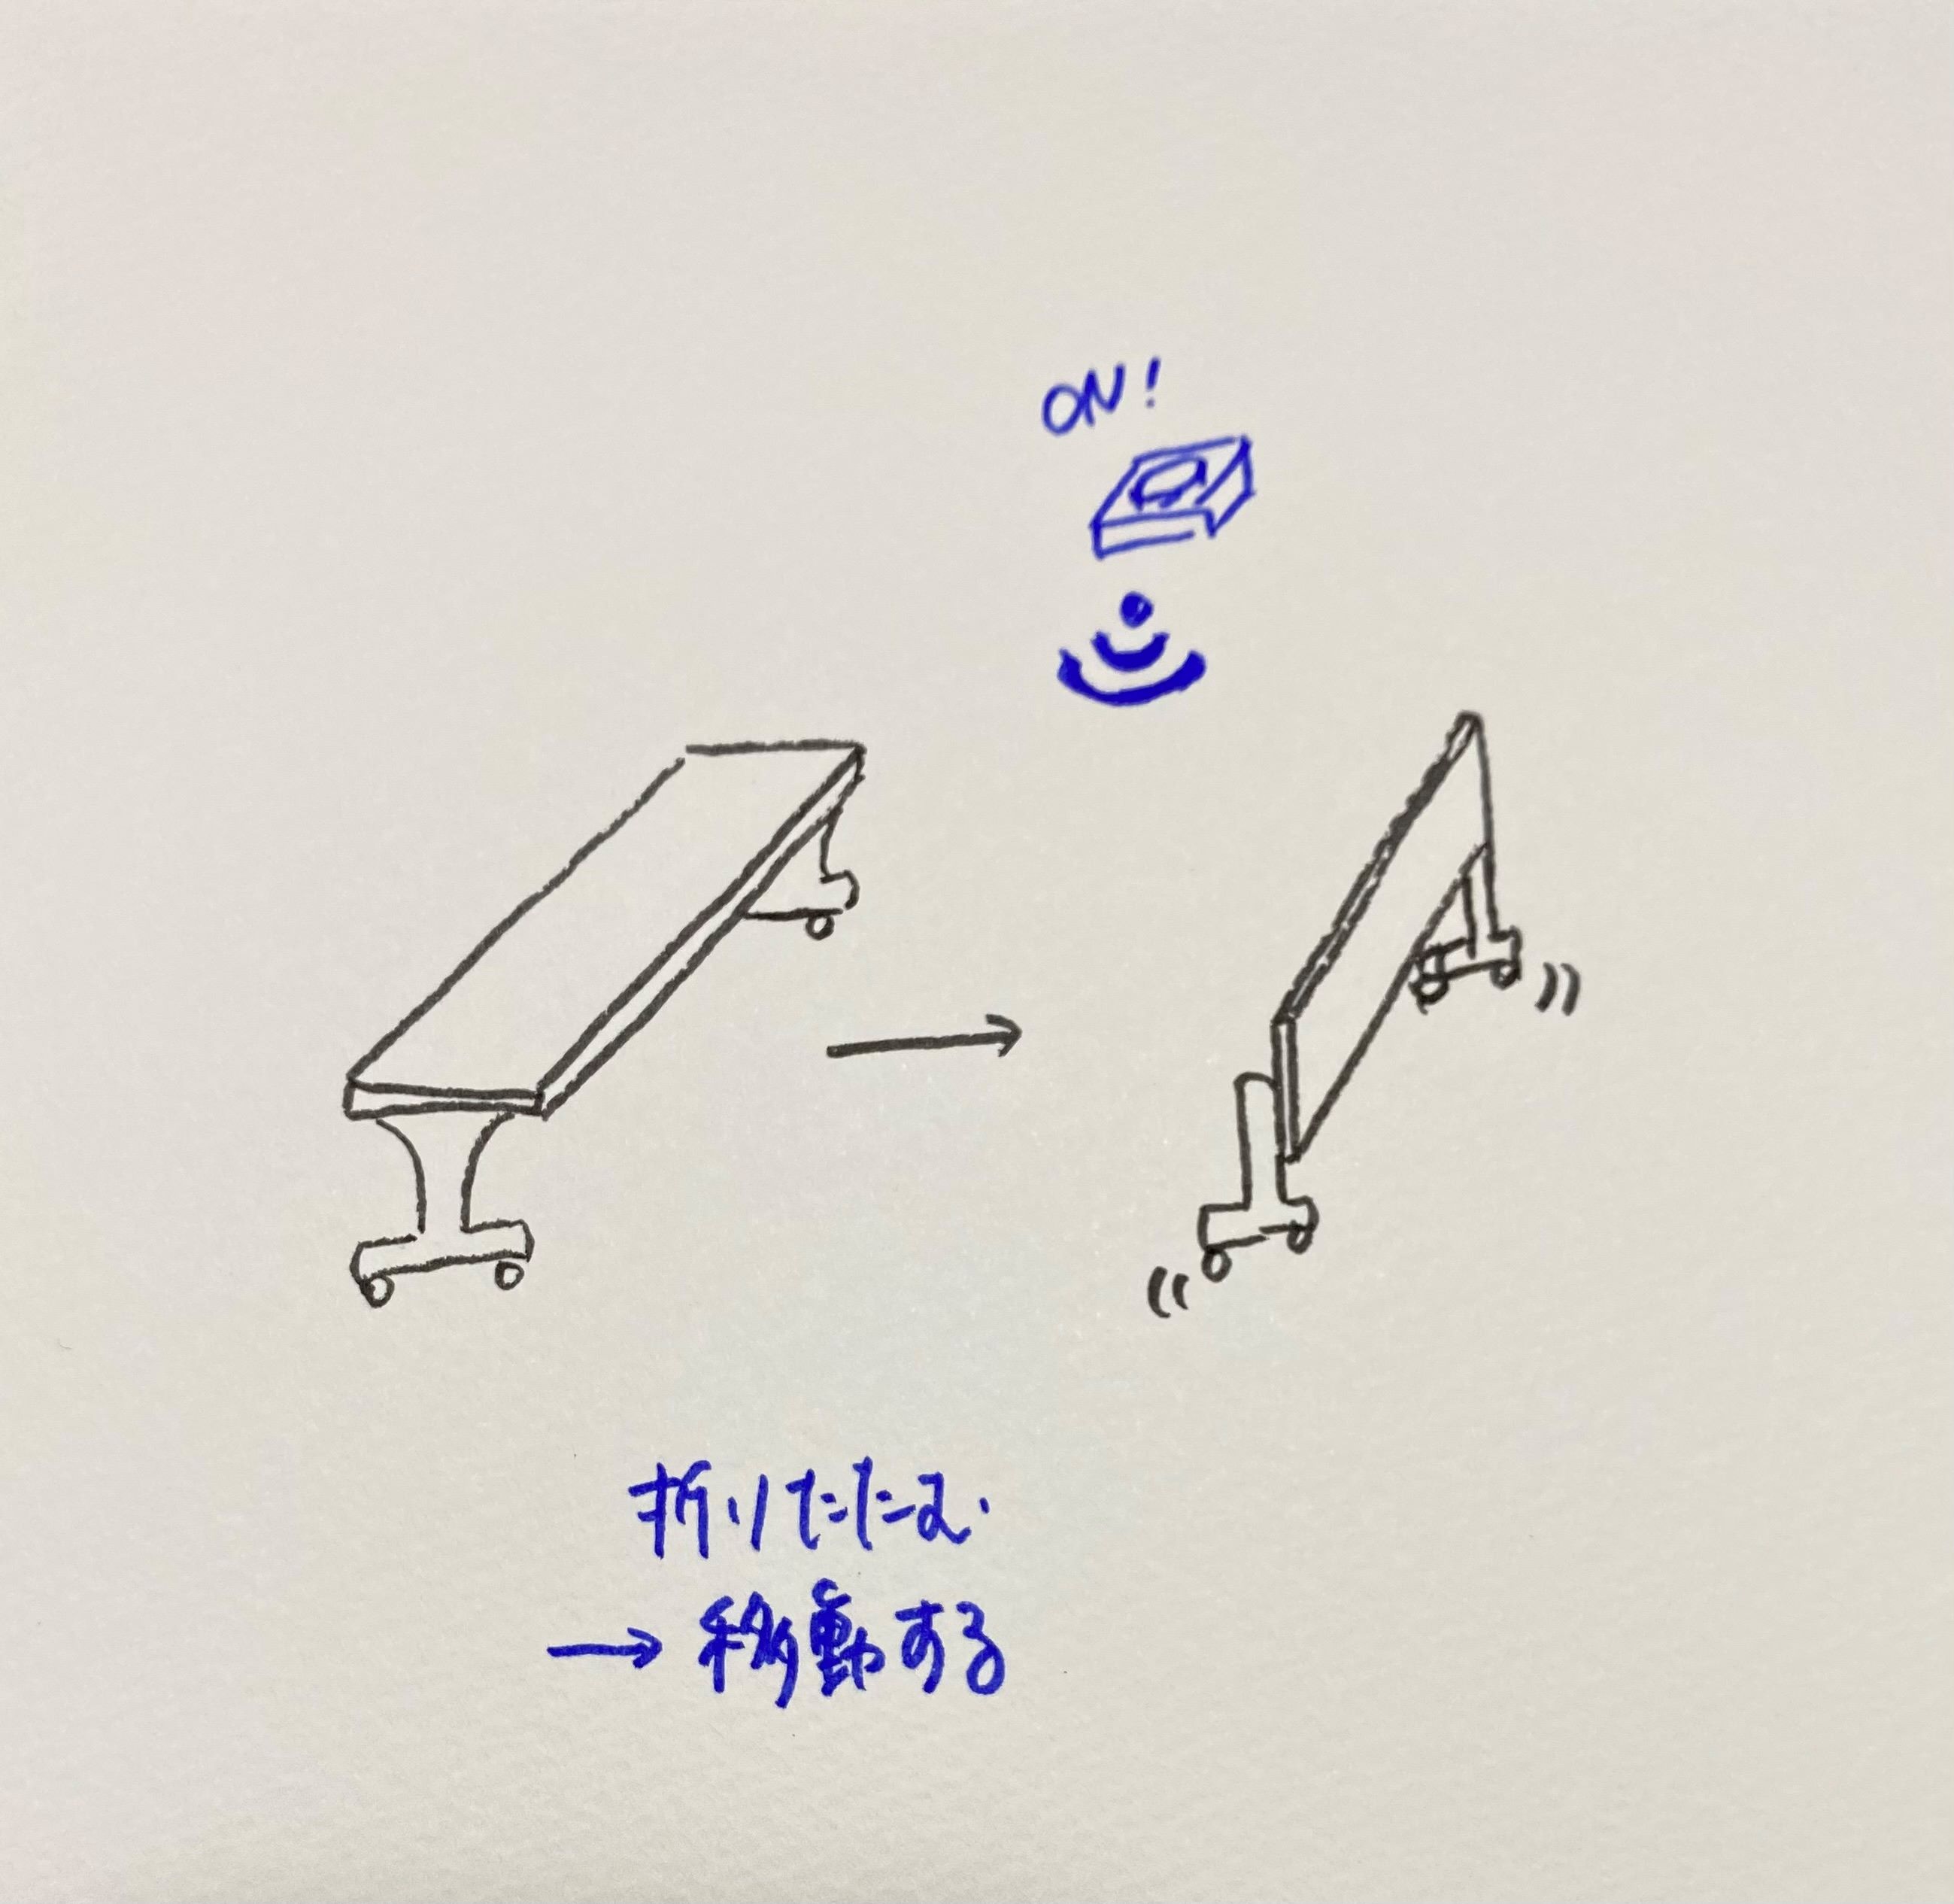 ON!
折りたたみ
→ 移動する